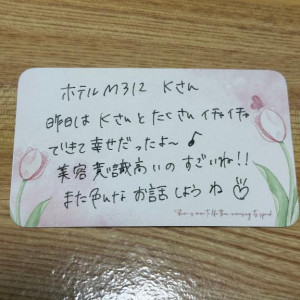 ホテルM312 Kさん
昨日は Kさんとたくさんイチャイチャ
できて幸せだったよ〜♪
美容意識高いのすごいね!!
また色んなお話しようね♡